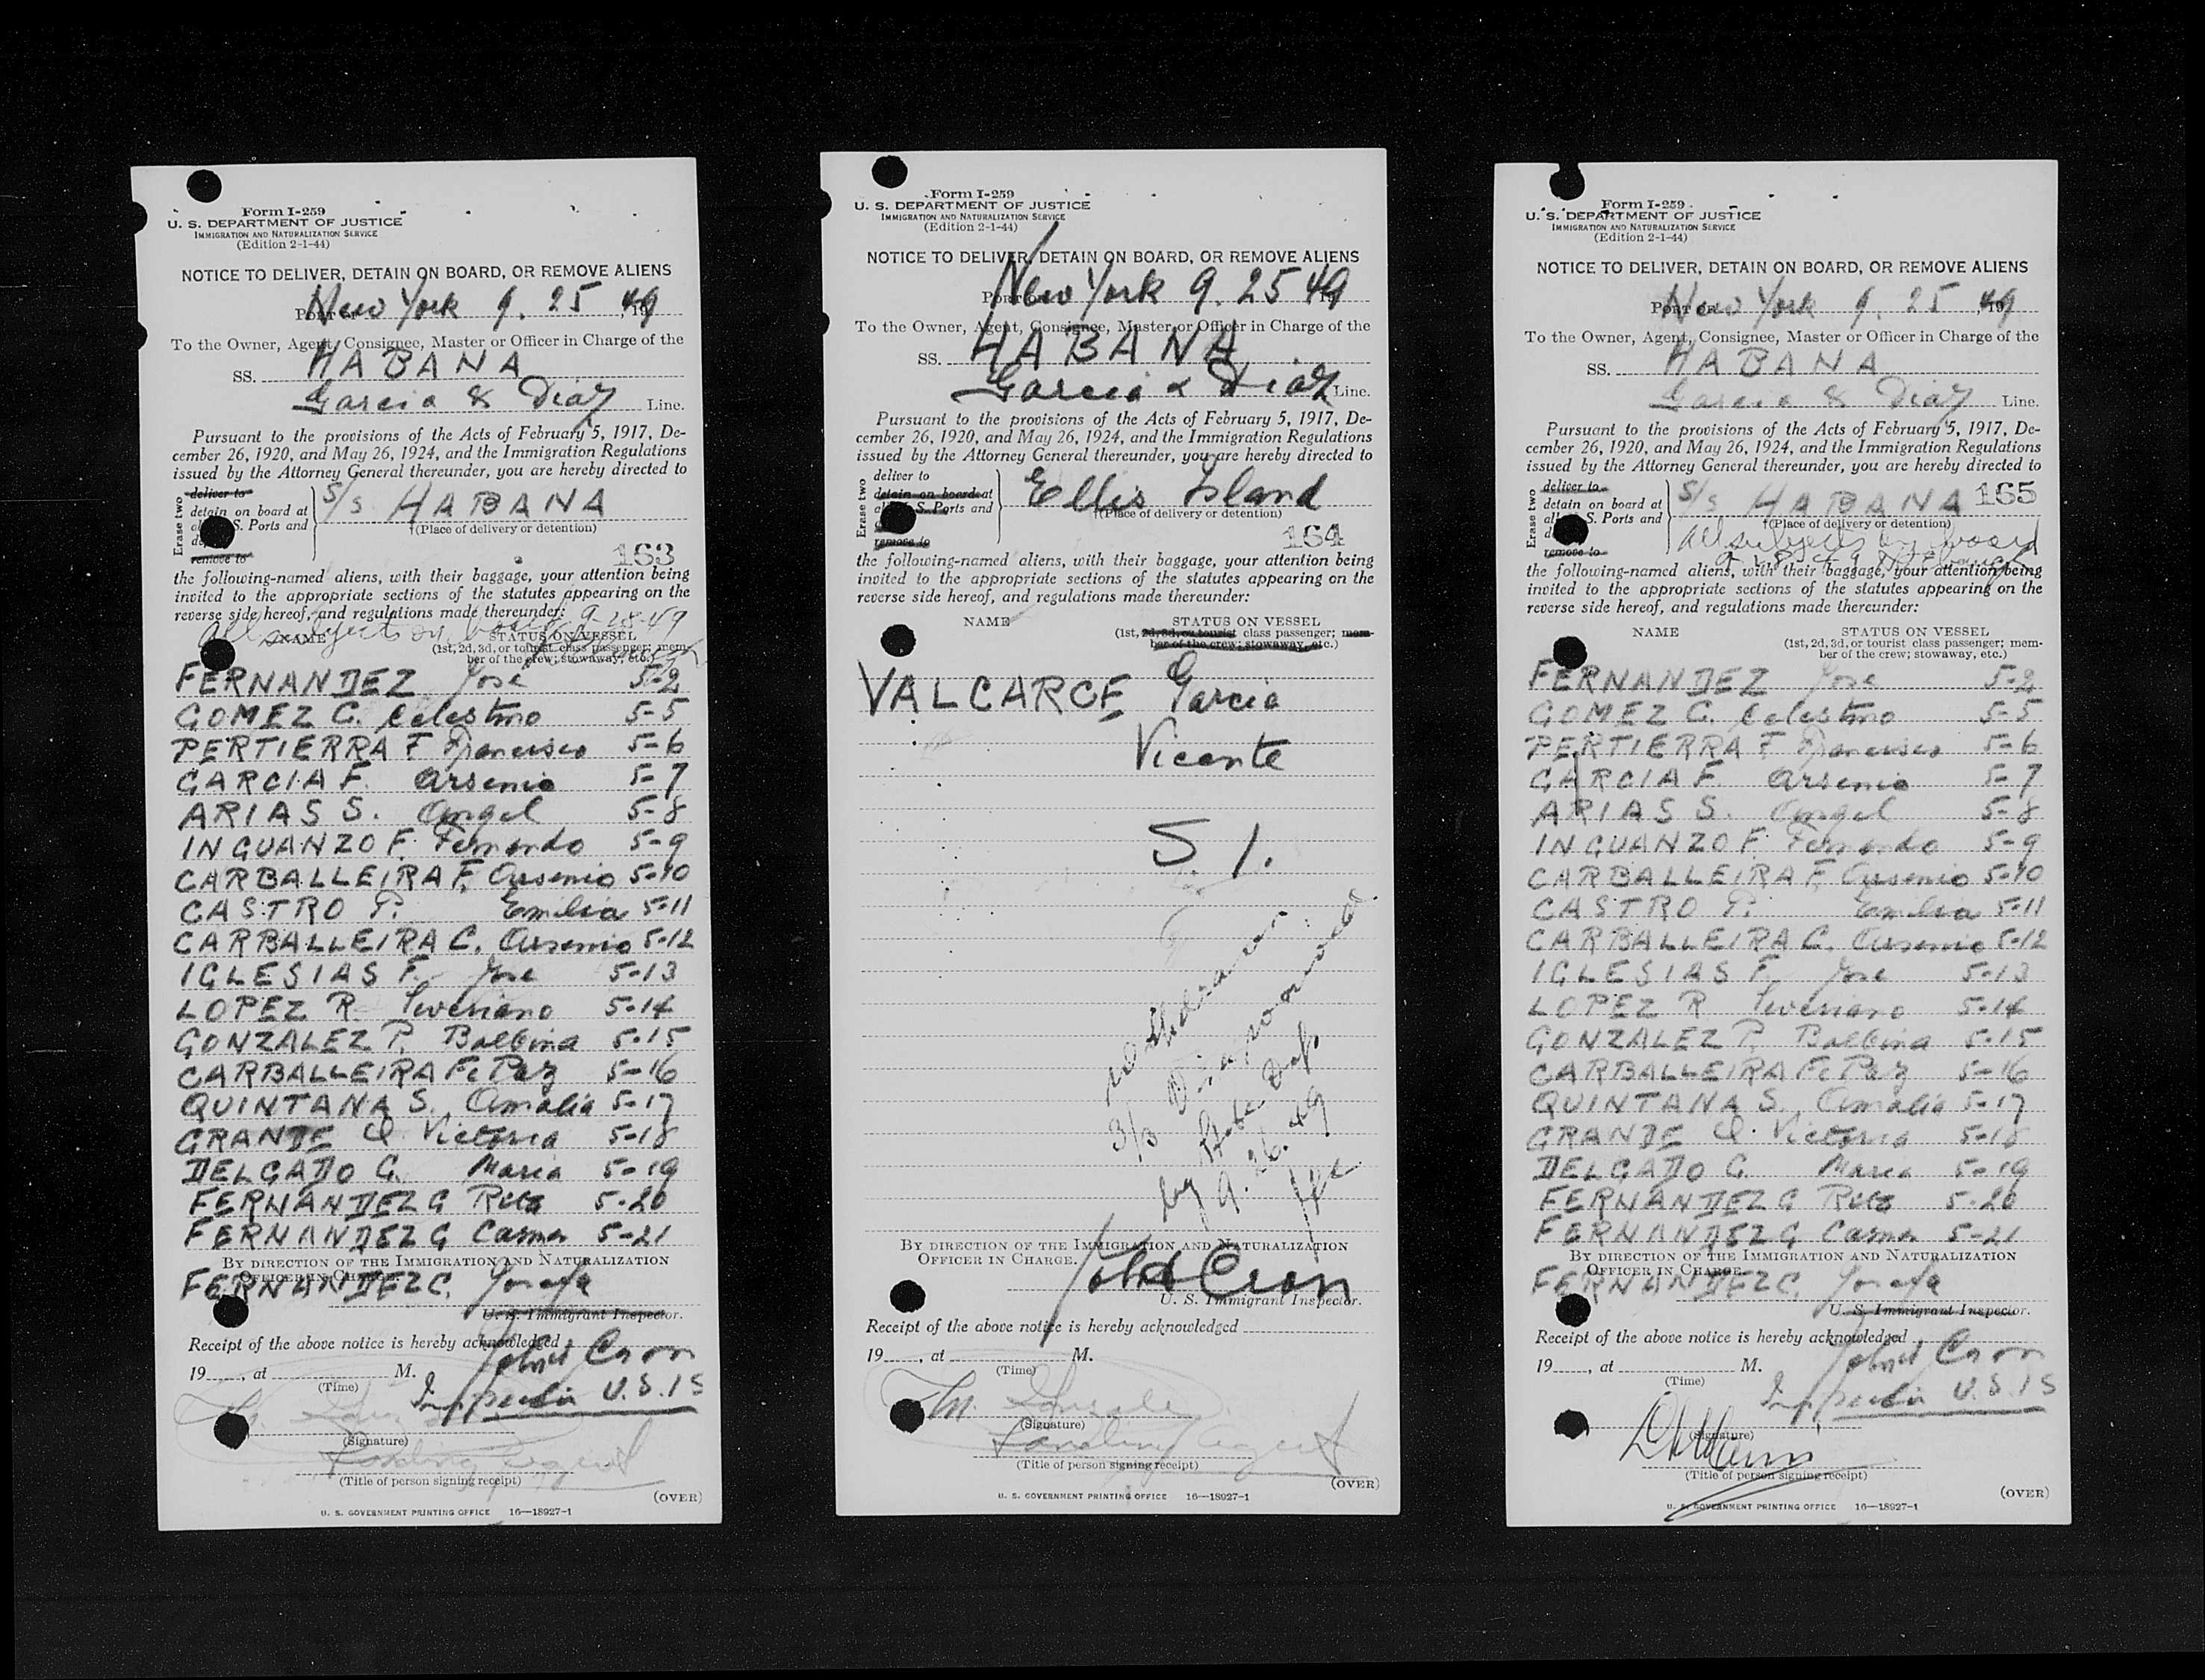 Form I-259
U. S. DEPARTMENT OF JUSTICE
IMMIGRATION AND NATURALIZATION SERVICE
(Edition 2-1-44)
NOTICE TO DELIVER, DETAIN ON BOARD, OR REMOVE ALIENS
PORT OF New York 9. 25, 1949
To the Owner, Agent, Consignee, Master or Officer in Charge of the
SS. HABANA
Garcia & Diaz Line.
Pursuant to the provisions of the Acts of February 5, 1917, De-
cember 26, 1920, and May 26, 1924, and the Immigration Regulations
issued by the Attorney General thereunder, you are hereby directed to
Erase two
deliver to
detain on board at
all S. Ports and
remove to
S/S HABANA
†(Place of delivery or detention)
163
the following-named aliens, with their baggage, your attention being
invited to the appropriate sections of the statutes appearing on the
reverse side hereof, and regulations made thereunder:
All subjects on board 9-28-49
NAME STATUS ON VESSEL
(1st, 2d, 3d, or tourist class passenger; mem-
ber of the crew; stowaway, etc.)
FERNANDEZ Jose 5-2
GOMEZ C. Celestino 5-5
PERTIERRA F Francisco 5-6
GARCIA F. Arsenio 5-7
ARIAS S. Angel 5-8
INGUANZO F. Fernando 5-9
CARBALLEIRA F. Arsenio 5-10
CASTRO P. Emilia 5-11
CARBALLEIRA C. Arsenio 5-12
IGLESIAS F. Jose 5-13
LOPEZ R. Severiano 5-14
GONZALEZ P. Balbina 5-15
CARBALLEIRA F. Paz 5-16
QUINTANA S. Amalia 5-17
GRANDE Q. Victoria 5-18
DELGADO G. Maria 5-19
FERNANDEZ G Rita 5-20
FERNANDEZ G Carmen 5-21
BY DIRECTION OF THE IMMIGRATION AND NATURALIZATION
OFFICER IN CHARGE.
FERNANDEZ C. Josefa
U. S. Immigrant Inspector.
Receipt of the above notice is hereby acknowledged
John Caon
19 , at M.
(Time)
Inspector U.S.I S
(Signature)
Landing Agent
(Title of person signing receipt)
(OVER)
U. S. GOVERNMENT PRINTING OFFICE 16—18927-1
Form I-259
U. S. DEPARTMENT OF JUSTICE
IMMIGRATION AND NATURALIZATION SERVICE
(Edition 2-1-44)
NOTICE TO DELIVER, DETAIN ON BOARD, OR REMOVE ALIENS
PORT OF New York 9. 25 1949
To the Owner, Agent, Consignee, Master or Officer in Charge of the
SS. HABANA
Garcia & Diaz Line.
Pursuant to the provisions of the Acts of February 5, 1917, De-
cember 26, 1920, and May 26, 1924, and the Immigration Regulations
issued by the Attorney General thereunder, you are hereby directed to
Erase two
deliver to
detain on board at
S. Ports and
remove to
Ellis Island
†(Place of delivery or detention)
164
the following-named aliens, with their baggage, your attention being
invited to the appropriate sections of the statutes appearing on the
reverse side hereof, and regulations made thereunder:
NAME STATUS ON VESSEL
(1st, 2d, 3d, or tourist class passenger; mem-
ber of the crew; stowaway, etc.)
VALCARCE Garcia
Vicente
5. 1.
by
9. 26. 49
BY DIRECTION OF THE IMMIGRATION AND NATURALIZATION
OFFICER IN CHARGE.
John Caon
U. S. Immigrant Inspector.
Receipt of the above notice is hereby acknowledged
19 , at M.
(Time)
M. Gonzalez
(Signature)
Landing Agent
(Title of person signing receipt)
(OVER)
U. S. GOVERNMENT PRINTING OFFICE 16—18927-1
Form I-259
U. S. DEPARTMENT OF JUSTICE
IMMIGRATION AND NATURALIZATION SERVICE
(Edition 2-1-44)
NOTICE TO DELIVER, DETAIN ON BOARD, OR REMOVE ALIENS
PORT OF New York 9. 25, 1949
To the Owner, Agent, Consignee, Master or Officer in Charge of the
SS. HABANA
Garcia & Diaz Line.
Pursuant to the provisions of the Acts of February 5, 1917, De-
cember 26, 1920, and May 26, 1924, and the Immigration Regulations
issued by the Attorney General thereunder, you are hereby directed to
Erase two
deliver to
detain on board at
all S. Ports and
remove to
S/S HABANA 165
†(Place of delivery or detention)
All subjects on board
the following-named aliens, with their baggage, your attention being
invited to the appropriate sections of the statutes appearing on the
reverse side hereof, and regulations made thereunder:
NAME STATUS ON VESSEL
(1st, 2d, 3d, or tourist class passenger; mem-
ber of the crew; stowaway, etc.)
FERNANDEZ Jose 5-2
GOMEZ C. Celestino 5-5
PERTIERRA F Francisco 5-6
GARCIA F. Arsenio 5-7
ARIAS S. Angel 5-8
INGUANZO F Fernando 5-9
CARBALLEIRA F. Arsenio 5-10
CASTRO P. Emilia 5-11
CARBALLEIRA C. Arsenio 5-12
IGLESIAS F. Jose 5-13
LOPEZ R Severiano 5-14
GONZALEZ P. Balbina 5-15
CARBALLEIRA F. Paz 5-16
QUINTANA S. Amalia 5-17
GRANDE Q. Victoria 5-18
DELGADO G. Maria 5-19
FERNANDEZ G Rita 5-20
FERNANDEZ G Carmen 5-21
BY DIRECTION OF THE IMMIGRATION AND NATURALIZATION
OFFICER IN CHARGE.
FERNANDEZ C. Josefa
U. S. Immigrant Inspector.
Receipt of the above notice is hereby acknowledged
John Caon
19 , at M.
(Time)
Inspector U.S.I S
(Signature)
(Title of person signing receipt)
(OVER)
U. S. GOVERNMENT PRINTING OFFICE 16—18927-1